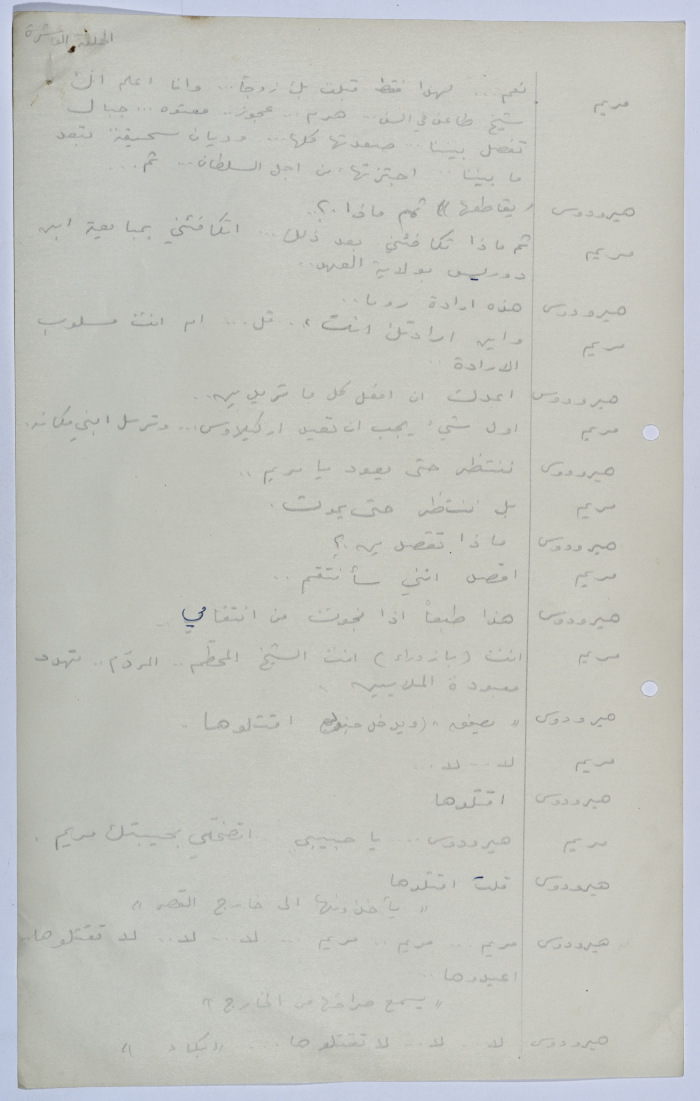 الحلقة العاشرة
مريم نعم... لهذا فقط قبلت بك زوجاً... وانا اعلم انك
شيخ طاعن في السن... هرم... عجوز.. معتوه... جبال
تفصل بيننا... صعدتها كلها... وديان سحيقة تبعد
ما بيننا.. اجتزتها من اجل السلطان... ثم...
هيرودوس « يقاطعها » ثم ماذا؟..
مريم ثم ماذا تكافئني بعد ذلك... اتكافئني بمبايعة ابن
دوريس بولاية العهد..
هيرودوس هذه ارادة روما..
مريم واين ارادتك انت؟.. قل... ام انت مسلوب
الارادة..
هيرودوس اعدك ان افعل كل ما تريدين..
مريم اول شيء يجب ان تعيد اركيلاوس... وترسل ابني مكانه.
هيرودوس ننتظر حتى يعود يا مريم..
مريم بل ننتظر حتى يموت.
هيرودوس ماذا تقصدين؟
مريم اقصد انني سأنتقم..
هيرودوس هذا طبعاً اذا نجوت من انتقامي..
مريم انت (بازدراء) انت الشيخ المحطم.. المردم.. تهدد
معبودة الملايين.
هيرودوس « يصفق » (ويدخل جنود) اقتلوها.
مريم لا... لا...
هيرودوس اقتلوها
مريم هيرودوس... يا حبيبي.. اتضحي بحبيبتك مريم.
هيرودوس قلت اقتلوها
« يأخذونها الى خارج القصر »
هيرودوس مريم... مريم.. مريم... لا... لا.. لا تقتلوها..
اعيدوها..
« يسمع صراخها من الخارج »
هيرودوس لا.. لا... لا تقتلوها... « بكاء »